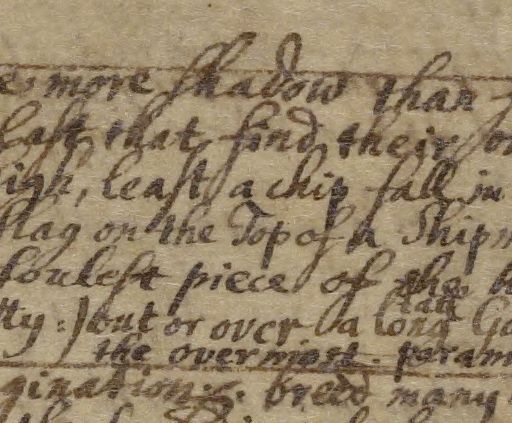 more shadow than
last that find their
high, least a chip fall in
flag on the Top of a Ship
foulest piece of the
tty:) out or over a long
the overmost. param
gination: breed many